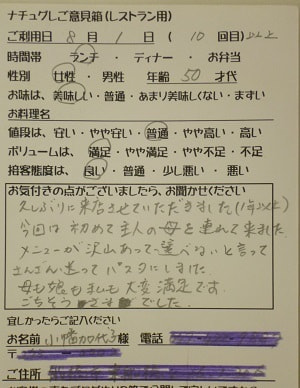 ナチュグしご意見箱(レストラン用)
ご利用日 8月 1日 ( 10 回目)以上
時間帯 ランチ・ディナー・お弁当
性別 女性・男性 年齢 50 才代
お味は、美味しい・普通・あまり美味しくない・まずい
お料理名
値段は、安い・やや安い・普通・やや高い・高い
ボリュームは、満足・やや満足・やや不足・不足
接客態度は、良い・普通・少し悪い・悪い
お気付きの点がございましたら、お聞かせください
久しぶりに来店させていただきました(1年以上)
今回は初めて主人の母を連れて来ました
メニューが沢山あって、選べないと言って
さんざん迷ってパスタにしました。
母も娘も私も大変満足です。
ごちそうさまでした。
宜しかったらご記入ください
お名前 小幡加代子 様 電話
〒
ご住所